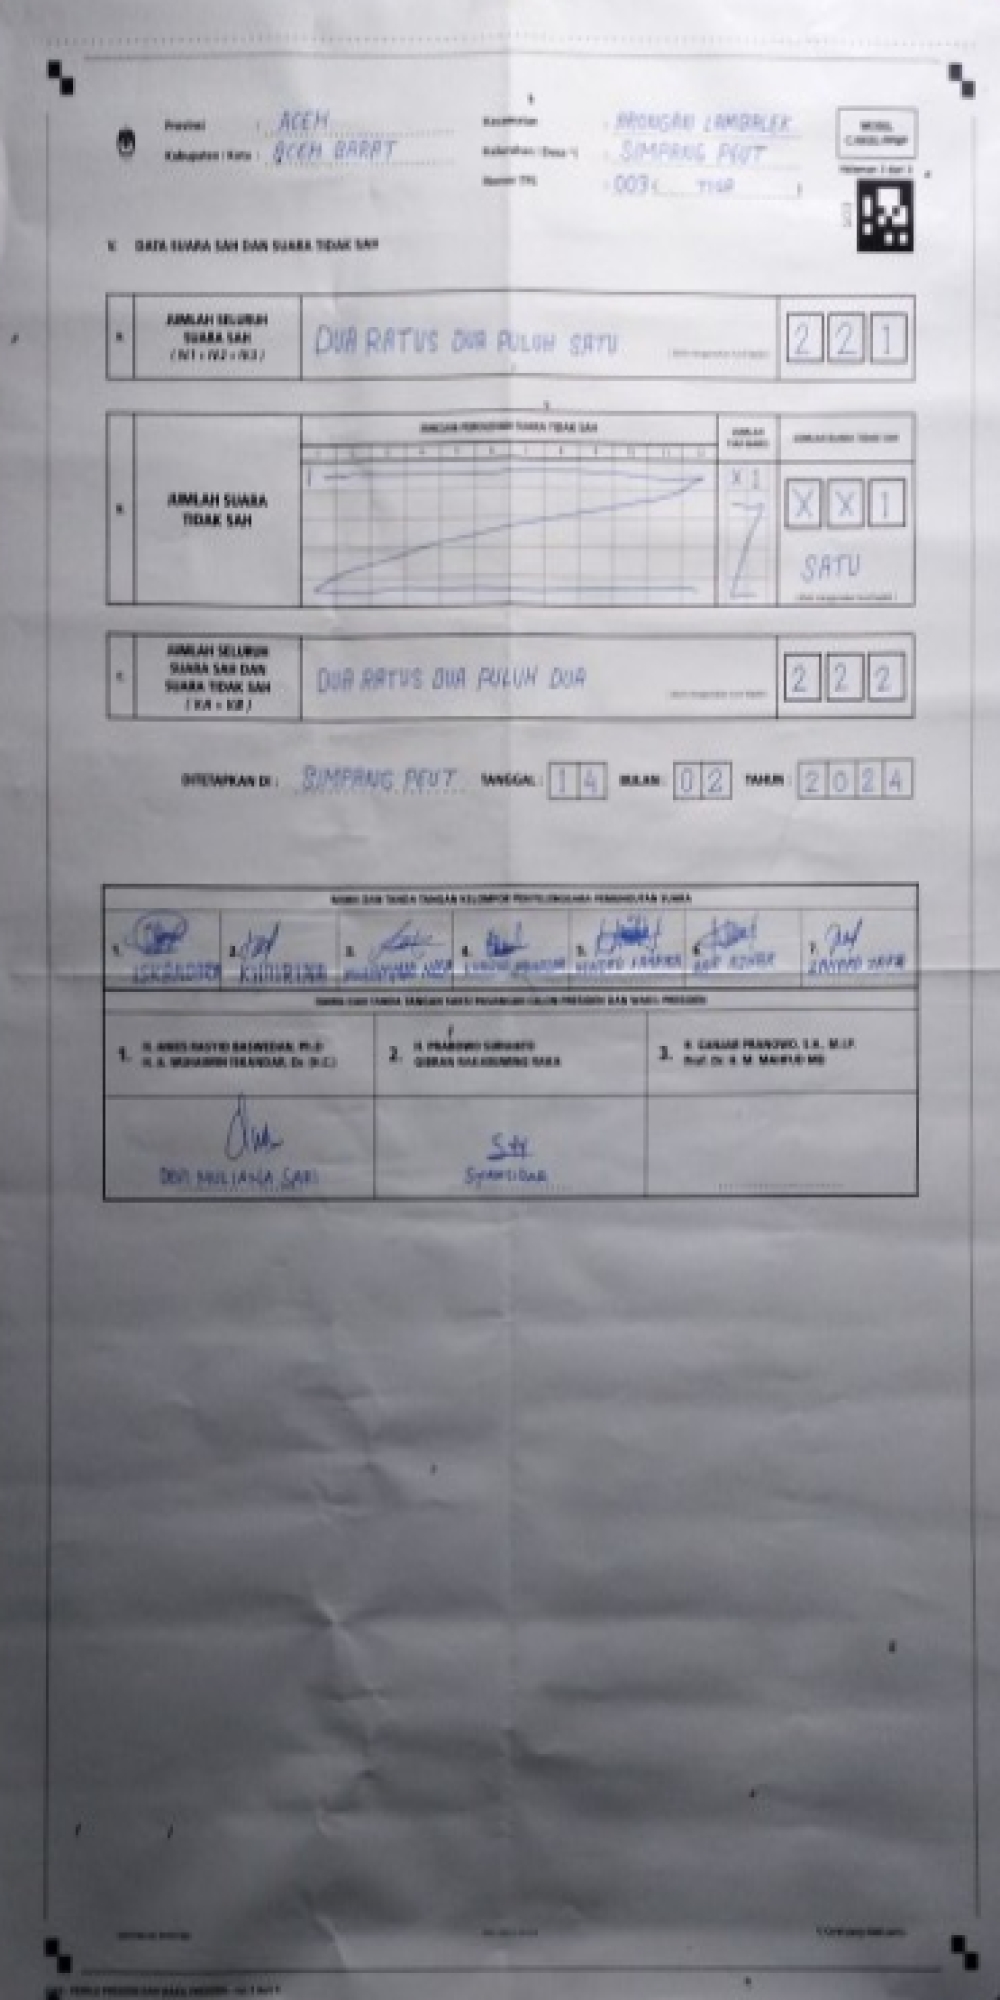 Provinsi : ACEH
Kabupaten / Kota : ACEH BARAT
Kecamatan : ARONGAN LAMBALEK
Kelurahan / Desa *) : SIMPANG PEUT
Nomor TPS : 003 ( TIGA )
MODEL
Halaman 3 dari 3
V. DATA SUARA SAH DAN SUARA TIDAK SAH
A. JUMLAH SELURUH
SUARA SAH
DUA RATUS DUA PULUH SATU
2 2 1
RINCIAN PEROLEHAN SUARA TIDAK SAH
JUMLAH SUARA TIDAK SAH
B. JUMLAH SUARA
TIDAK SAH
X 1
X X 1
SATU
C. JUMLAH SELURUH
SUARA SAH DAN
SUARA TIDAK SAH
( V.A + V.B )
DUA RATUS DUA PULUH DUA
2 2 2
DITETAPKAN DI : SIMPANG PEUT TANGGAL : 1 4 BULAN : 0 2 TAHUN : 2 0 2 4
NAMA DAN TANDA TANGAN KELOMPOK PENYELENGGARA PEMUNGUTAN SUARA
1. 2. 3. 4. 5. 6. 7.
NAMA DAN TANDA TANGAN SAKSI PASANGAN CALON PRESIDEN DAN WAKIL PRESIDEN
1. H. ANIES RASYID BASWEDAN, Ph.D
H. A. MUHAIMIN ISKANDAR, Dr. (H.C.)
2. H. PRABOWO SUBIANTO
GIBRAN RAKABUMING RAKA
3. H. GANJAR PRANOWO, S.H., M.I.P.
Prof. Dr. H. M. MAHFUD MD
DEVI MULIANA SARI
SYAMSIDAR